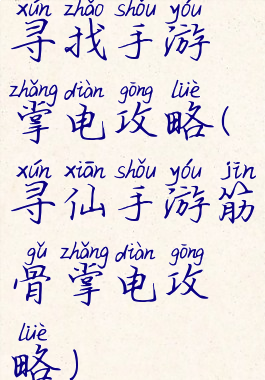 xún zhǎo shǒu yóu
寻找手游
zhǎng diàn gōng lüè
掌电攻略(
xún xiān shǒu yóu jīn
寻仙手游筋
gǔ zhǎng diàn gōng
骨掌电攻
lüè
略)